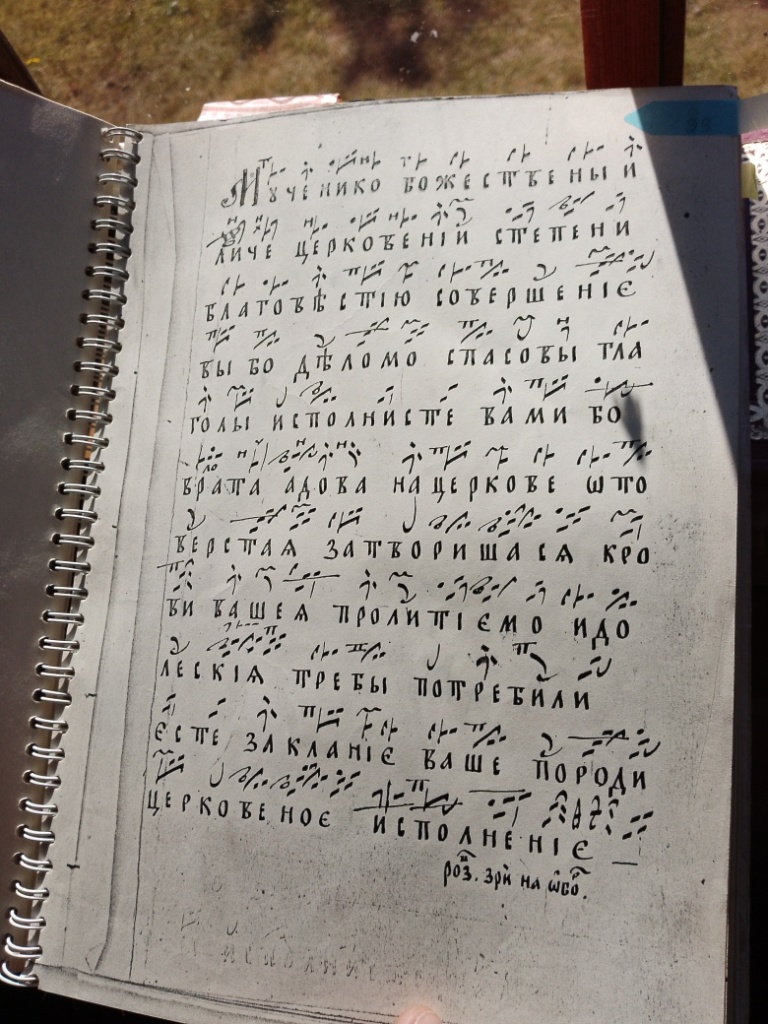 Мꙋченико божествены и
личе церковенїй степени
благовѣстїю совершенїє
вы бо дѣломо спасовы гла
голы исполнисте вами бо
врата адова нацеркове ѿто
верстая затворишася кро
ви вашея пролитїємо идо
лескїя требы потребили
єсте закланїє ваше породи
церковеноє исполненїє
роз. зри на ѡбо.